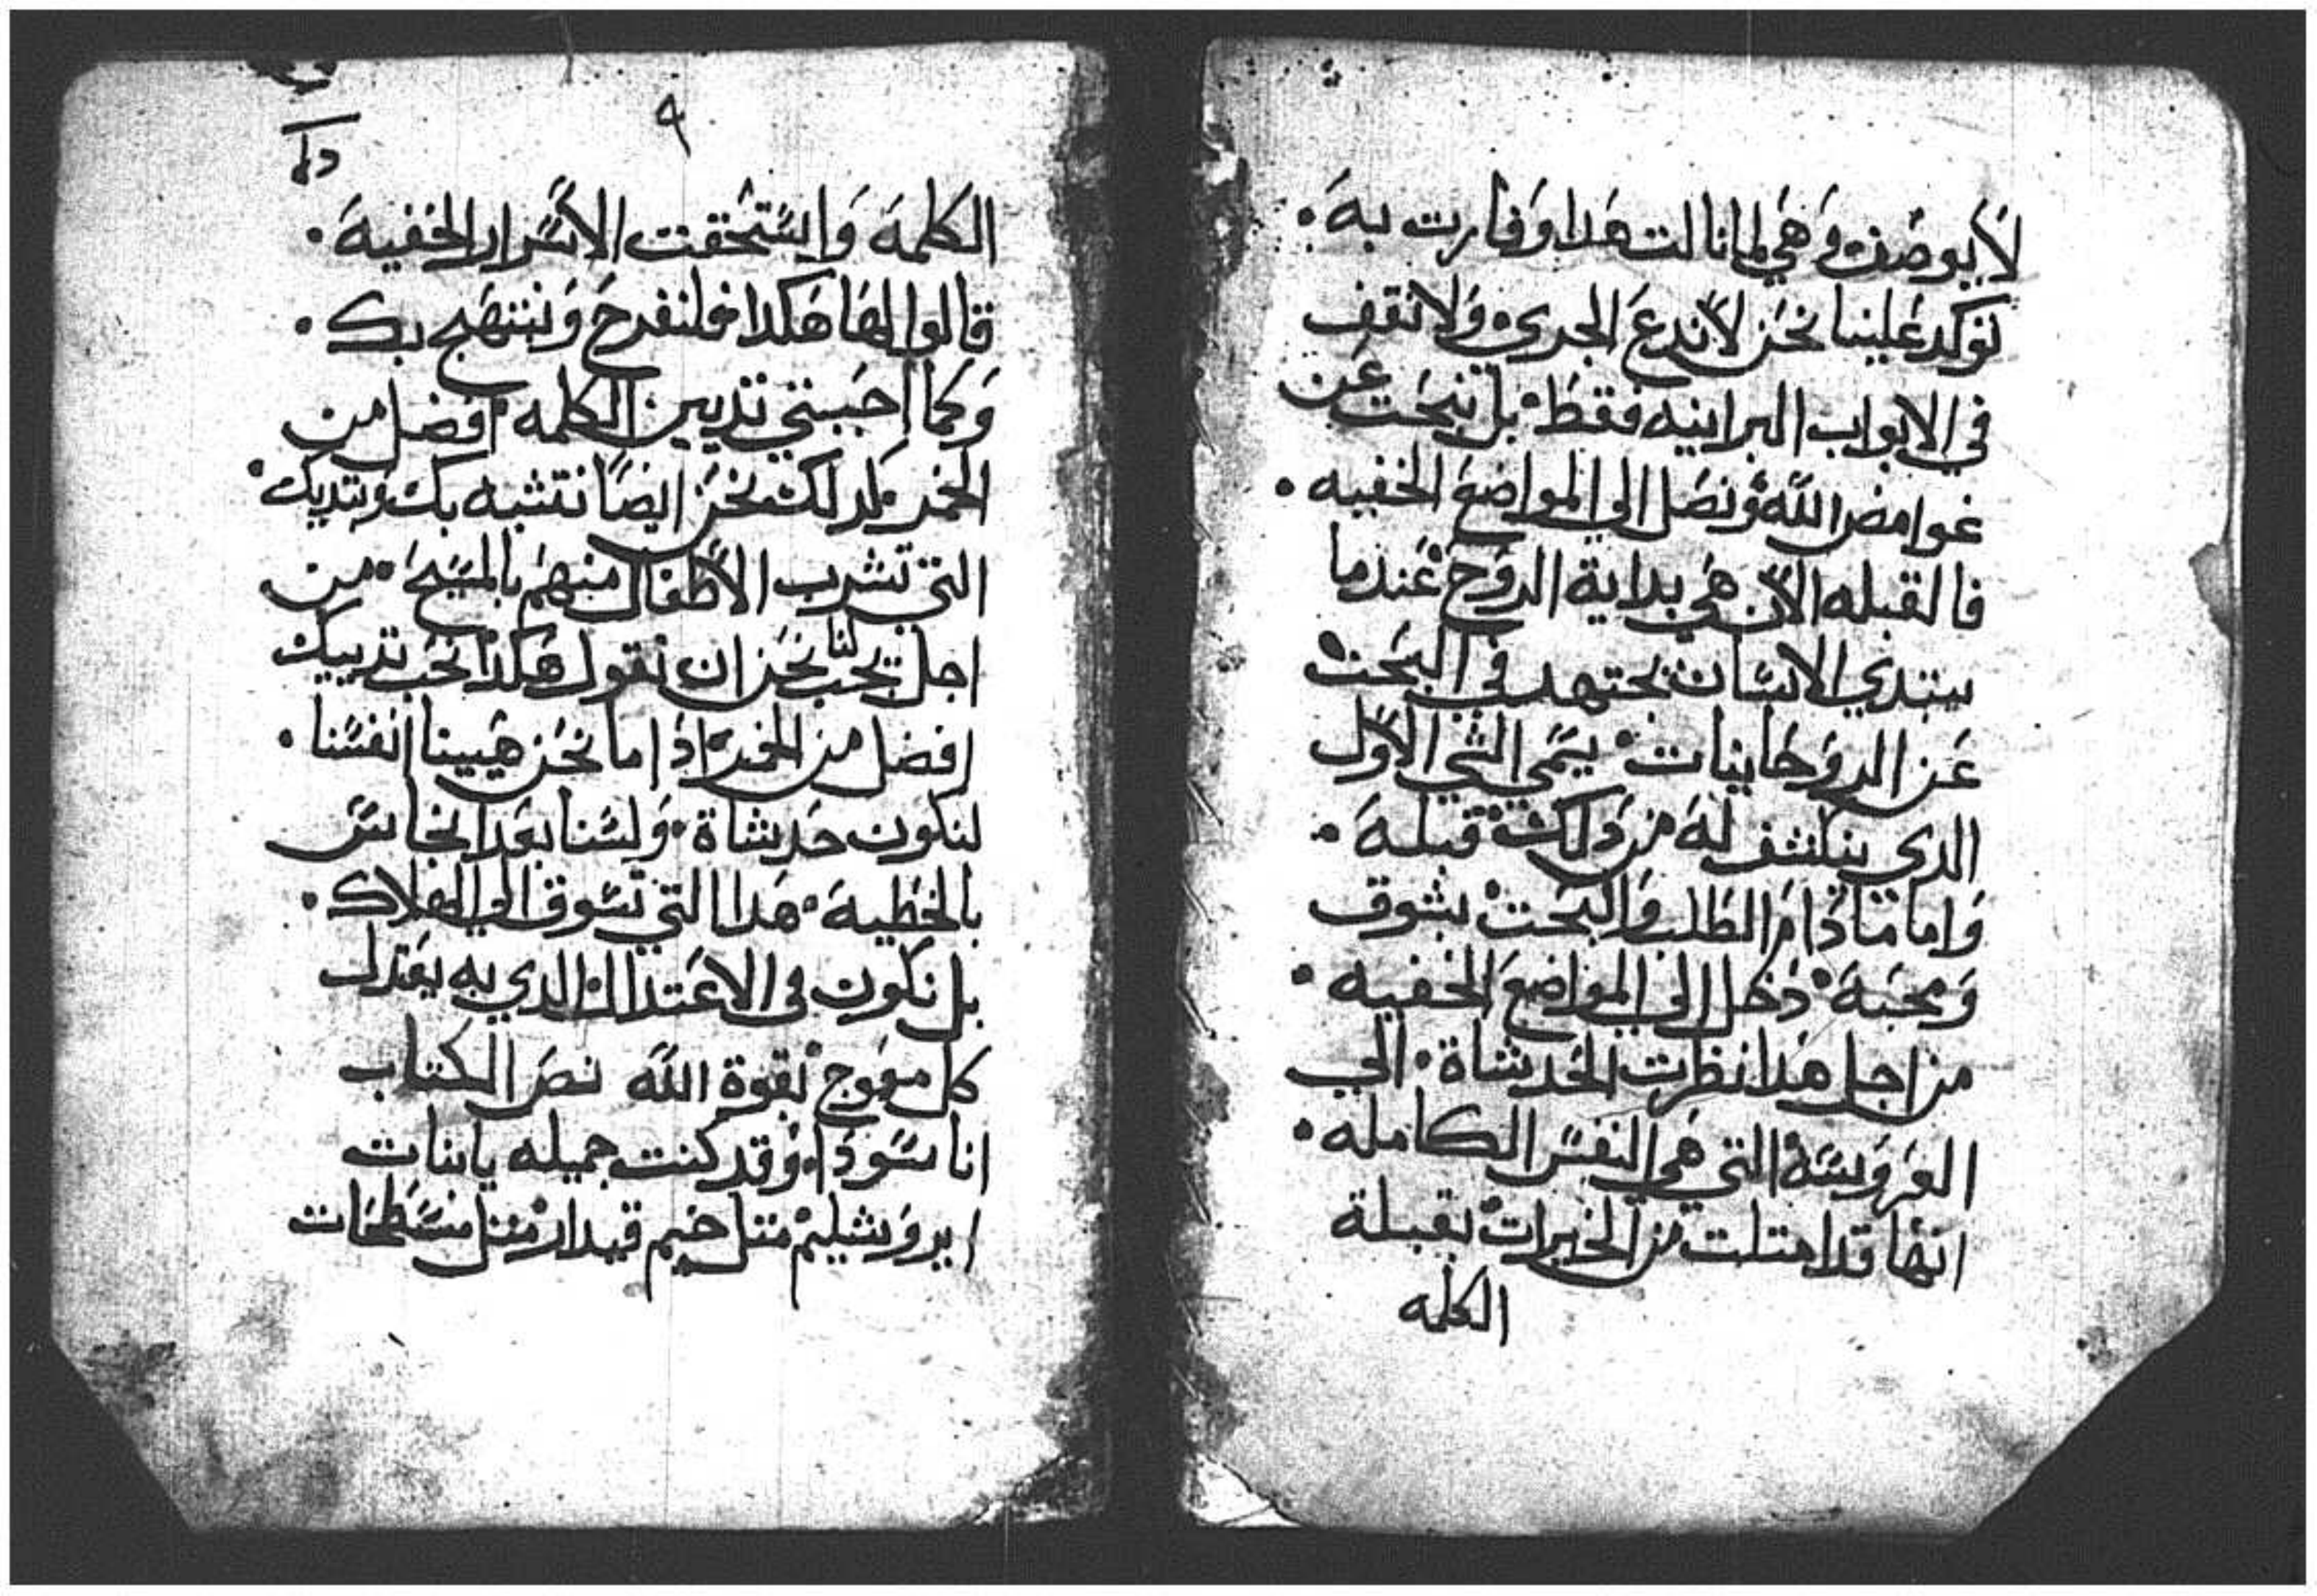 لا يوصف وهي لما نالت هدا وفارت به .
توكد علينا نحن لا ندع الجري ولا نقف
في الابواب البرانيه فقط بل نبحت عن
غوامض الله ونصل الي المواضع الخفيه .
فالقبله الان هي بداية الروح عندما
يبتدي الانسان يجتهد في البحت
عن الروحانيات يسمي الشي الاول
الدي ينكشف له من دلك قبلة .
واما متا دام الطلب والبحت بشوق
ومحبة دخل الي المواضع الخفيه .
من اجل هدا نظرت الحديثاة الي
العروسة التي هي النفس الكامله .
انها قد امتلت من الخيرات بقبلة
الكلمه
٩
الكلمة واستحقت الاسرار الخفية .
قالوا لها هكدا فلنفرح ونبتهج بك .
وكما احببتي تديين الكلمه افضل من
الخمر كدلك نحن ايضا نتشبه بك وبتديك .
التي تشرب الاطفال منهم بالمسيح من
اجل يجب لنا نحن ان نقول هكدا نحب تدييك
افضل من الخمر ادا ما نحن هيينا انفسنا .
لنكون حديثاة ولسنا بعد انجاس
بالخطية هدا التي تسوق الي الهلاك .
بل نكون في الاعتدال الدي به يعتدل
كل معوج بقوة الله نص الكتاب
انا سودا وقد كنت جميله يا بنات
ايروشليم متل خيم قيدار متل منسطحات